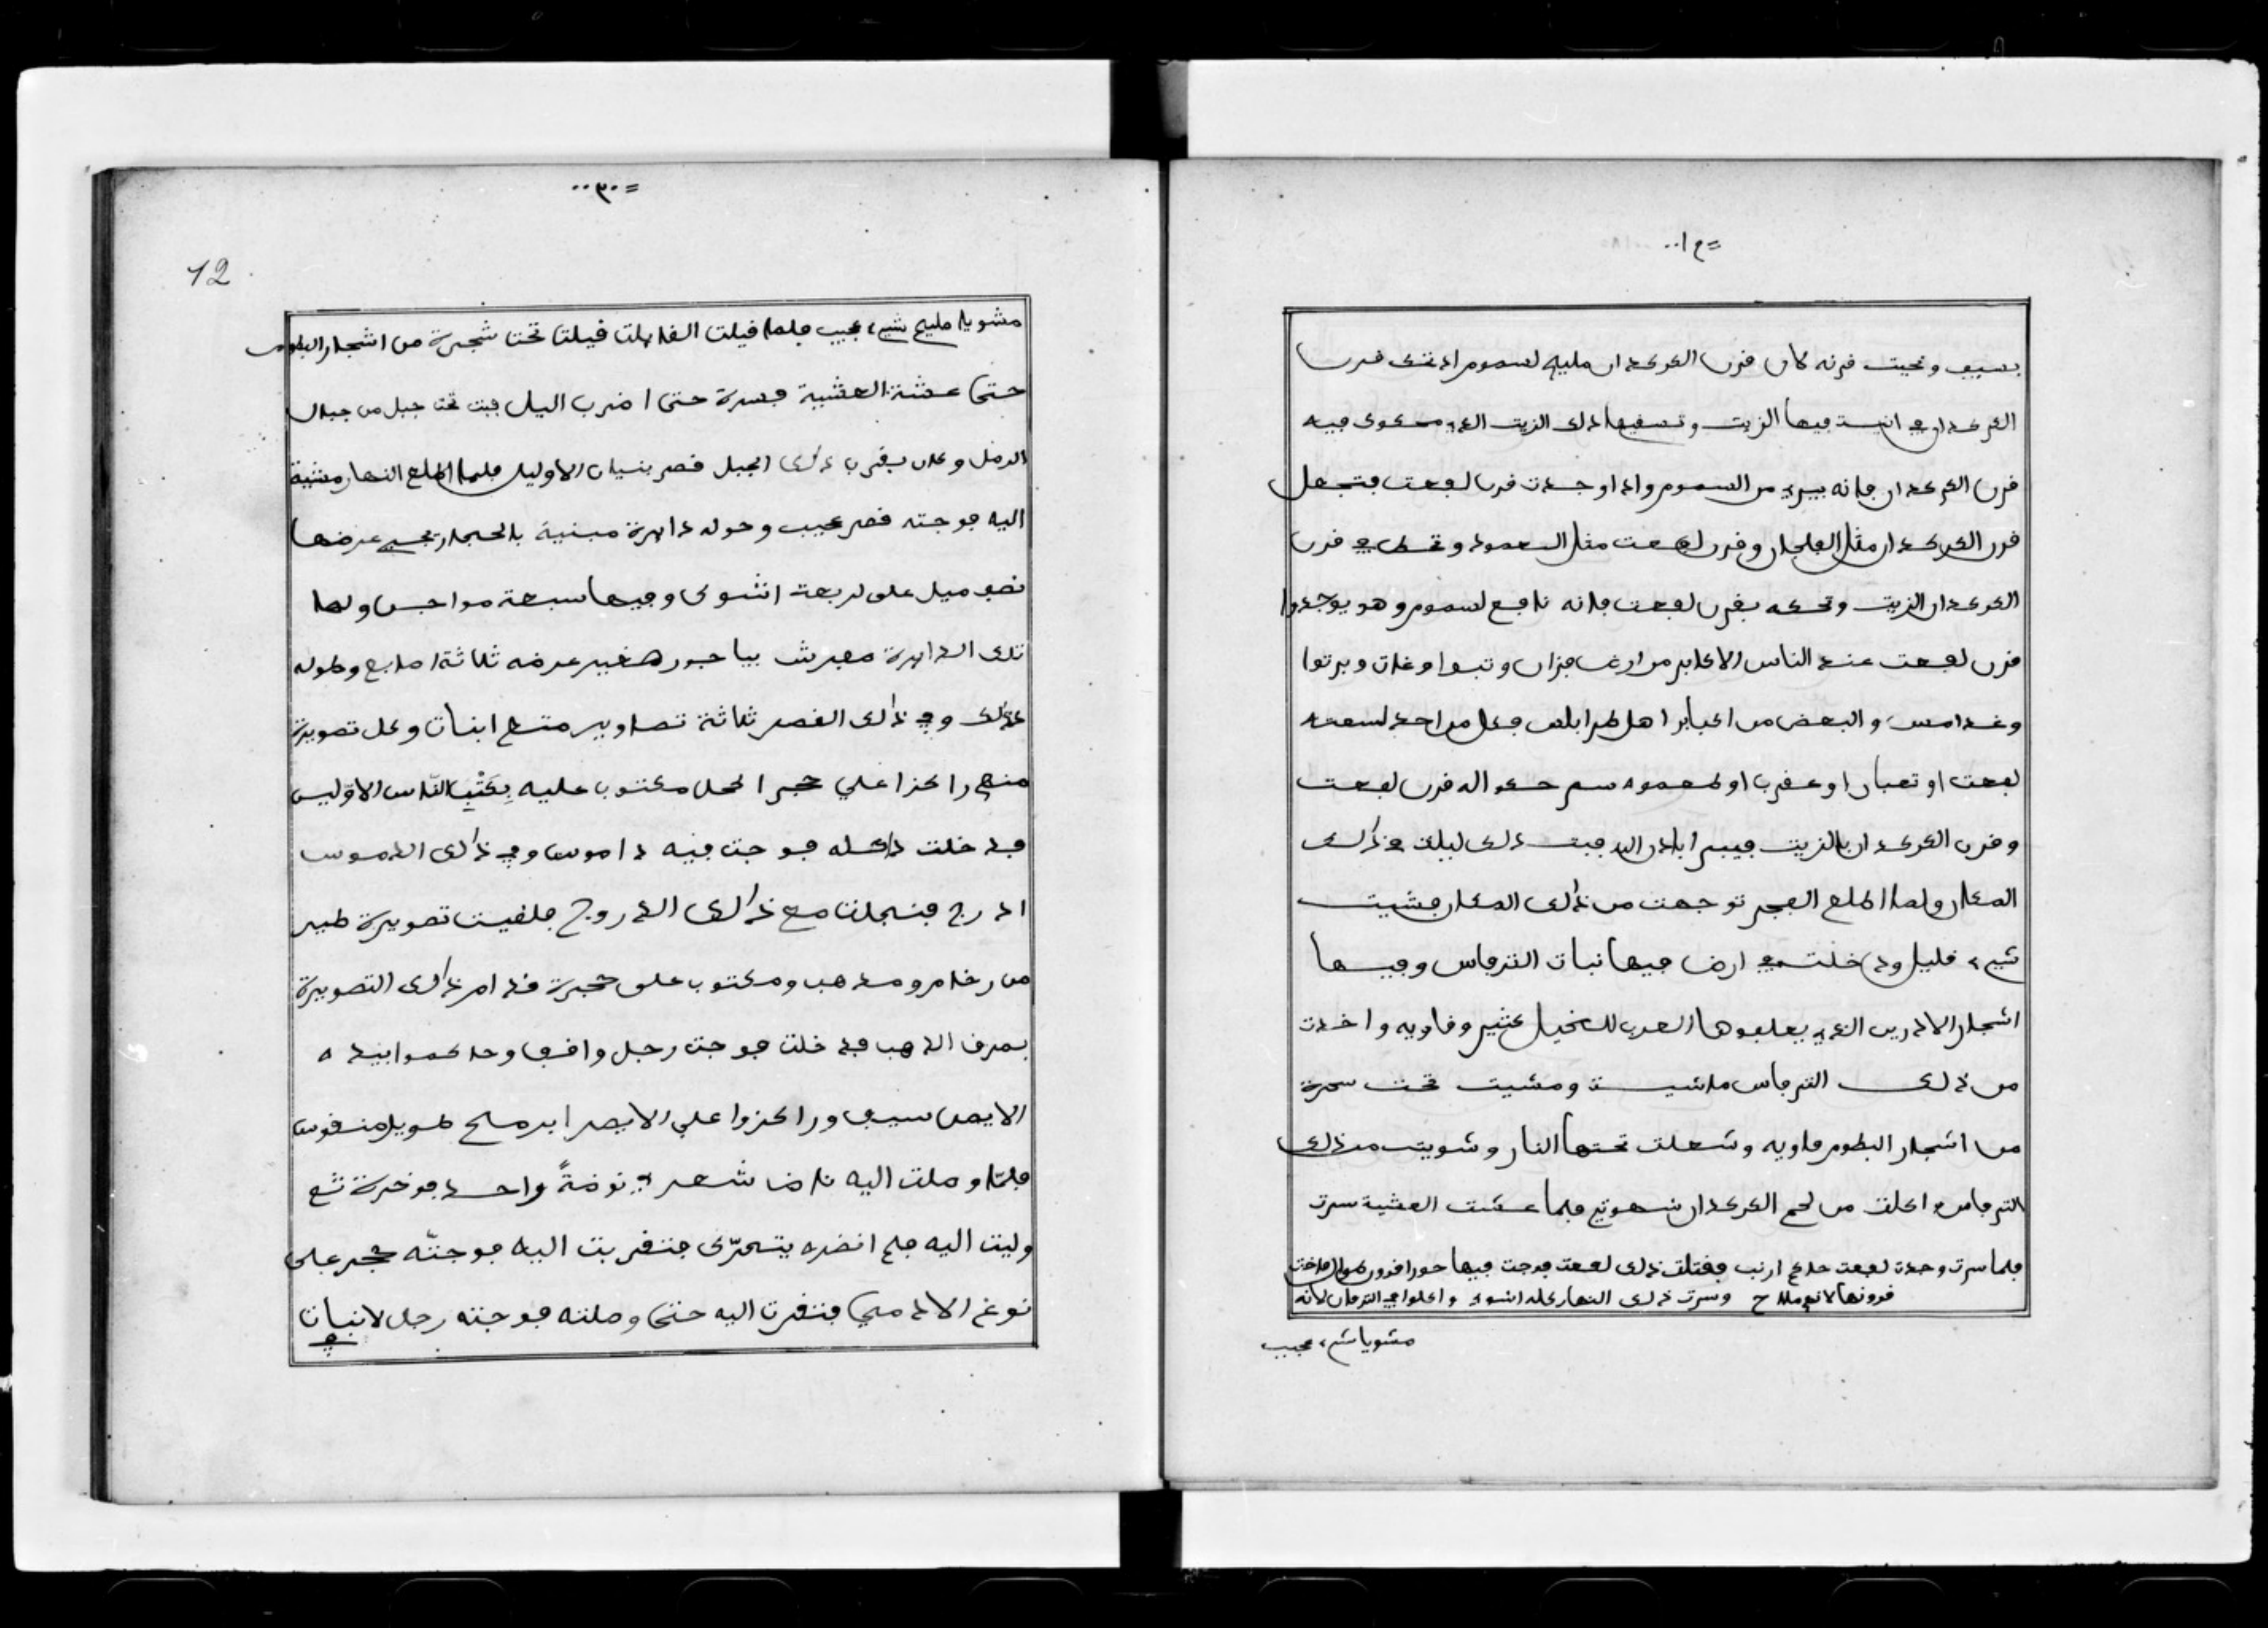 بسيف ونحيت فرنه كان فرن الكركدان مليح لسموم اذ تحك فرن
الكركدان في انية فيها الزيت وتسفيها ذلك الزيت الذي محكوك فيه
فرن الكركدان فانه يبرئ من السموم واذا وجدت فرن لفعت فتجعل
فرن الكركدان مثل الفلجان وفرن لفعت مثل العمود وتحط في فرن
الكركدان الزيت وتحكه بفرن لفعت فانه نافع لسموم وهو يوجدوا
فرن لفعت عند الناس الاكابر من ارض فزان وتبوا وغات وبرنوا
وغدامس والبعض من اكبابر اهل طرابلس فكل من احد لسعته
لفعت او ثعبان او عفرب او طعموه سم حكوا له فرن لفعت
وفرن الكركدان بالزيت فيبرا باذن الله فبت ذلك ليلت في ذلك
المكان ولما اطلع الفجر توجهت من ذلك المكان فشيت
شيء فليل ودخلت في ارض فيها نبات الترفاس وفيها
اشجار الادرين الذي يعلفوها العرب للخيل كثير وفاويه واخدت
من ذلك الترفاس ماشيت ومشيت تحت سمرة
من اشجار البطوم فاويه وشعلت تحتها النار وشويت من ذلك
الترفاس واكلت من لحم الكركدان شهوتي فلما عشت العشية سرت
فلما سرت وجدت لفعت حاكم ارنب ففتلت ذلك لفعت فوجت فيها حورا فرون طوال فاخذت
فرونها لانهم ملاح وسرت ذلك النهار كله انشوي واكلوا في الترفاس لانه
مشويا شيء عجيب
٣٠
12
مشويا مليح شيء عجيب فلما فيلت الفايلت فيلت تحت شجرة من اشجار البطوم
حتى عشت العشية فسرة حتى اضرب اليل فبت تحت جبل من جبال
الرمل وكان بفرب ذلك الجبل فصر بنيان الاولين فلما اطلع النهار مشيت
اليه فوجته فصر عجيب وحوله دايرة مبنية بالحجار عرضها
نصف ميل على لربعت انشوى وفيها سبعة مواجن ولها
تلك الدايرة مفرش بياجور صغير عرضه ثلاثة اصابع وطوله
كذلك وفي ذلك الفصر ثلاثة تصاوير متاع ابنات وكل تصويرة
منهم راكزا على حجر اكحل مكتوب عليه بكتب الناس الاولين
فدخلت داخله فوجت فيه داموس وفي ذلك الدموس
ادرج فنسجلت مع ذلك الدروج فلفيت تصويرة طير
من رخام ومذهب ومكتوب على حجرة فدام ذلك التصويرة
بحرف الذهب فدخلت فوجت رجل وافف وحاكموا بيده
الايمن سيف وراكزوا على الايصر ابرمح طويل منفوس
فلما وصلت اليه ناض شعر في نوضة واحد فوخرة ثم
وليت اليه فلم انضره يتحرك فتفربت اليه فوجته حجر على
نوع الادمي فتفرت اليه حتى وصلته فوجته رجل لانبات